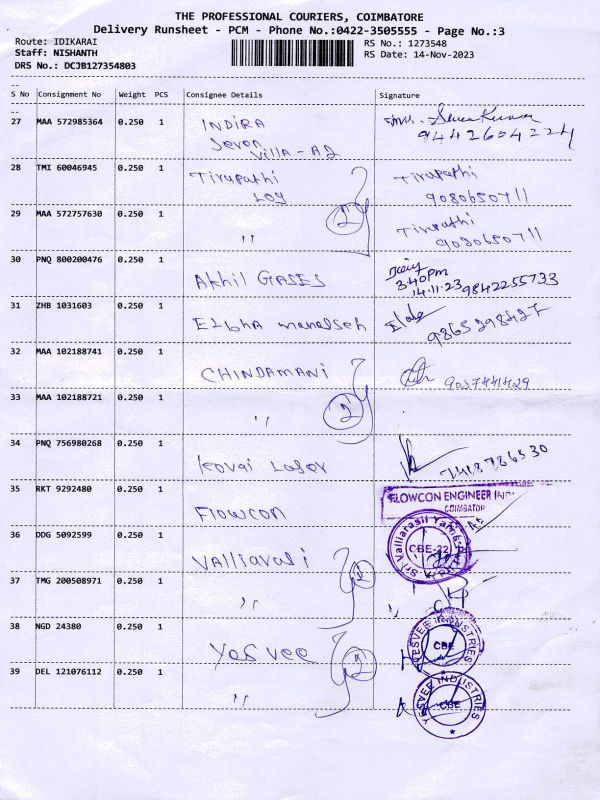 THE PROFESSIONAL COURIERS, COIMBATORE
Delivery Runsheet - PCM - Phone No.:0422-3505555 - Page No.:3
Route: IDIKARAI
RS No.: 1273548
Staff: NISHANTH
RS Date: 14-Nov-2023
DRS No.: DCJB127354803
S No Consignment No Weight PCS Consignee Details Signature
27 MAA 572985364 0.250 1 INDIRA
Seven
Villa - A2
28 TMI 60046945 0.250 1 Tirupathi Tirupathi
Loy 9080650711
29 MAA 572757630 0.250 1 " Tirupathi
2 9080650711
30 PNQ 800200476 0.250 1 Akhil GASES
3.40pm
14.11.23 9842255733
31 ZHB 1031603 0.250 1
9865298427
32 MAA 102188741 0.250 1 CHINDAMANI
33 MAA 102188721 0.250 1 "
2
34 PNQ 756980268 0.250 1 Kovai
35 RKT 9292480 0.250 1 Flowcon FLOWCON ENGINEER
COIMBATOR
36 DDG 5092599 0.250 1 2 CBE-22
37 TMG 200508971 0.250 1 " "
38 NGD 24380 0.250 1 Yes vee 2 YESVEE INDUSTRIES CBE
39 DEL 121076112 0.250 1 " YESVEE INDUSTRIES CBE